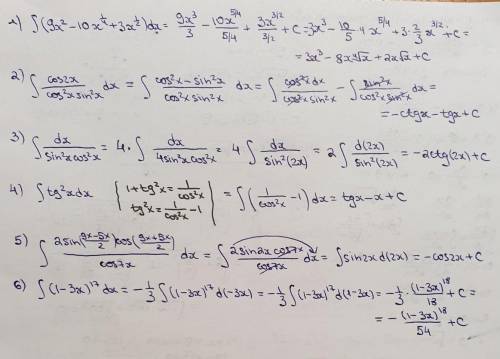 1) ∫(9x² - 10x^(1/4) + 3x^(1/2))dx = 9x³/3 - 10x^(5/4)/(5/4) + 3x^(3/2)/(3/2) + C = 3x³ - 10/5 · 4 x^(5/4) + 3 · 2/3 x^(3/2) + C =
= 3x³ - 8x ⁴√x + 2x√x + C
2) ∫ cos2x/(cos²x sin²x) dx = ∫ (cos²x - sin²x)/(cos²x sin²x) dx = ∫ cos²x dx/(cos²x sin²x) - ∫ sin²x/(cos²x sin²x) dx =
= -ctgx - tgx + C
3) ∫ dx/(sin²x cos²x) = 4 · ∫ dx/(4sin²x cos²x) = 4 ∫ dx/sin²(2x) = 2 ∫ d(2x)/sin²(2x) = -2ctg(2x) + C
4) ∫ tg²x dx { 1 + tg²x = 1/cos²x
tg²x = 1/cos²x - 1 } = ∫ (1/cos²x - 1) dx = tgx - x + C
5) ∫ 2sin((9x-5x)/2) cos((9x+5x)/2)/cos7x dx = ∫ 2sin2x cos7x/cos7x dx = ∫ sin2x d(2x) = -cos2x + C
6) ∫ (1-3x)¹⁷ dx = -1/3 ∫ (1-3x)¹⁷ d(-3x) = -1/3 ∫ (1-3x)¹⁷ d(1-3x) = -1/3 · (1-3x)¹⁸/18 + C =
= - (1-3x)¹⁸/54 + C